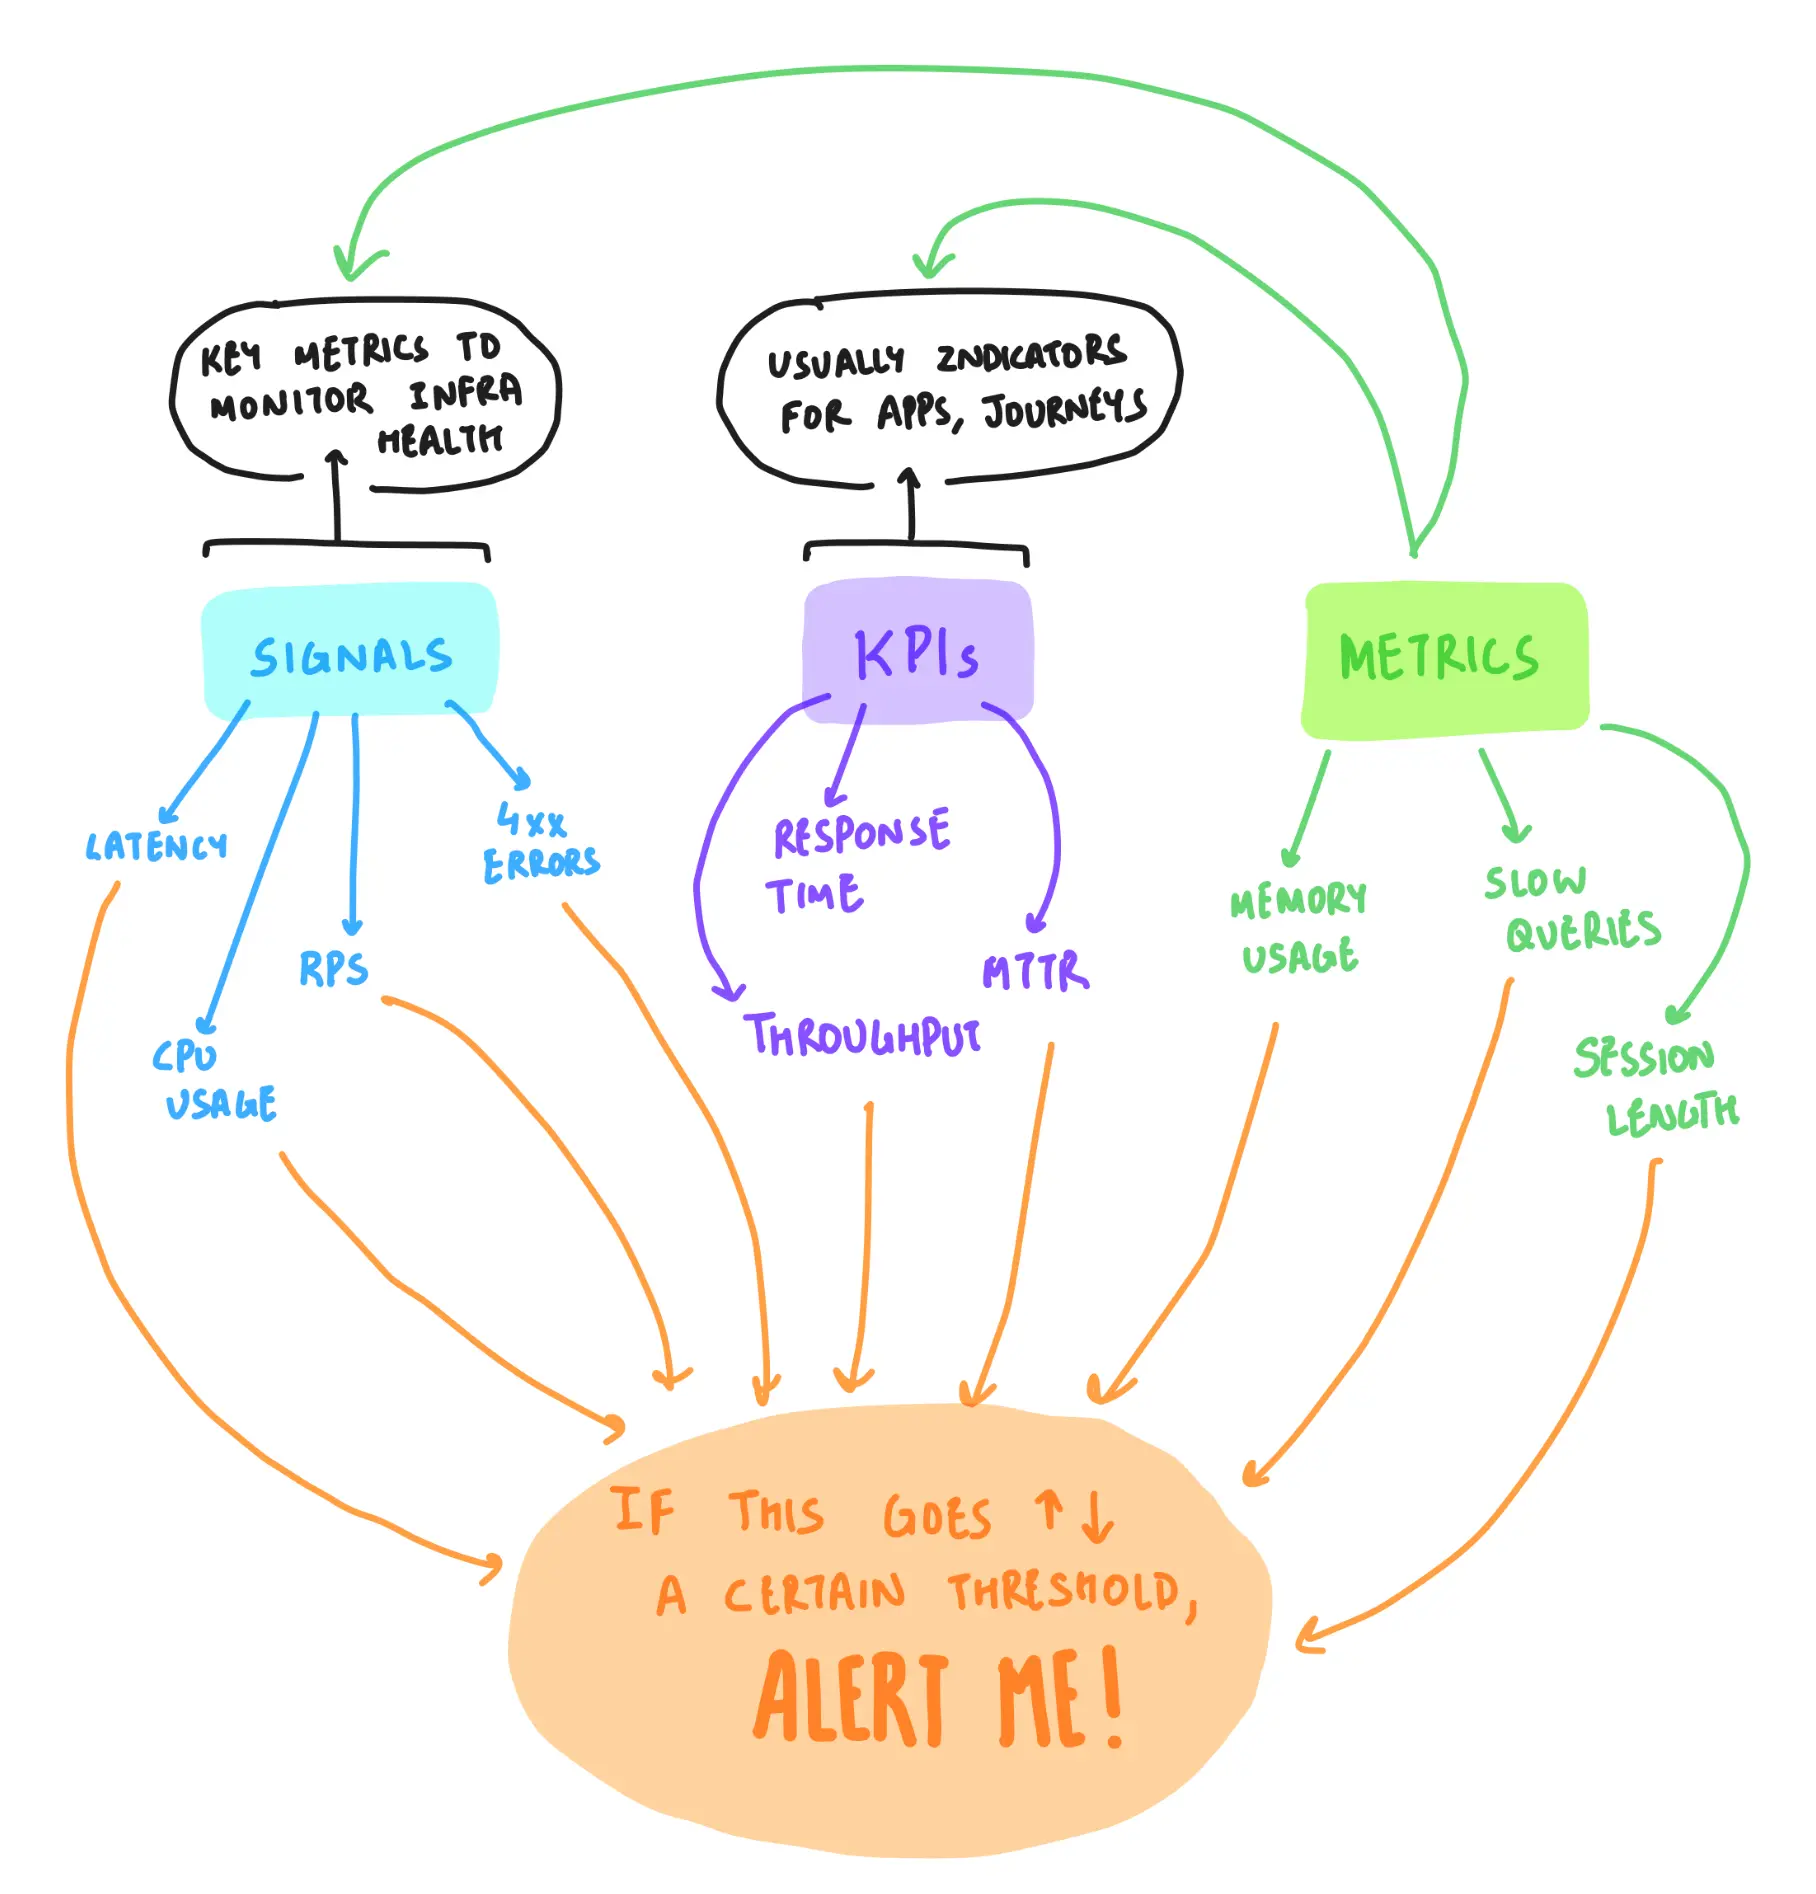 KEY METRICS TO
MONITOR INFRA
HEALTH
USUALLY ZNDICATORS
FOR APPS, JOURNEYS
SIGNALS
KPIs
METRICS
LATENCY
4XX
ERRORS
RPS
CPU
USAGE
RESPONSE
TIME
MTTR
THROUGHPUT
MEMORY
USAGE
SLOW
QUERIES
SESSION
LENGTH
IF THIS GOES ↑↓
A CERTAIN THRESHOLD,
ALERT ME!